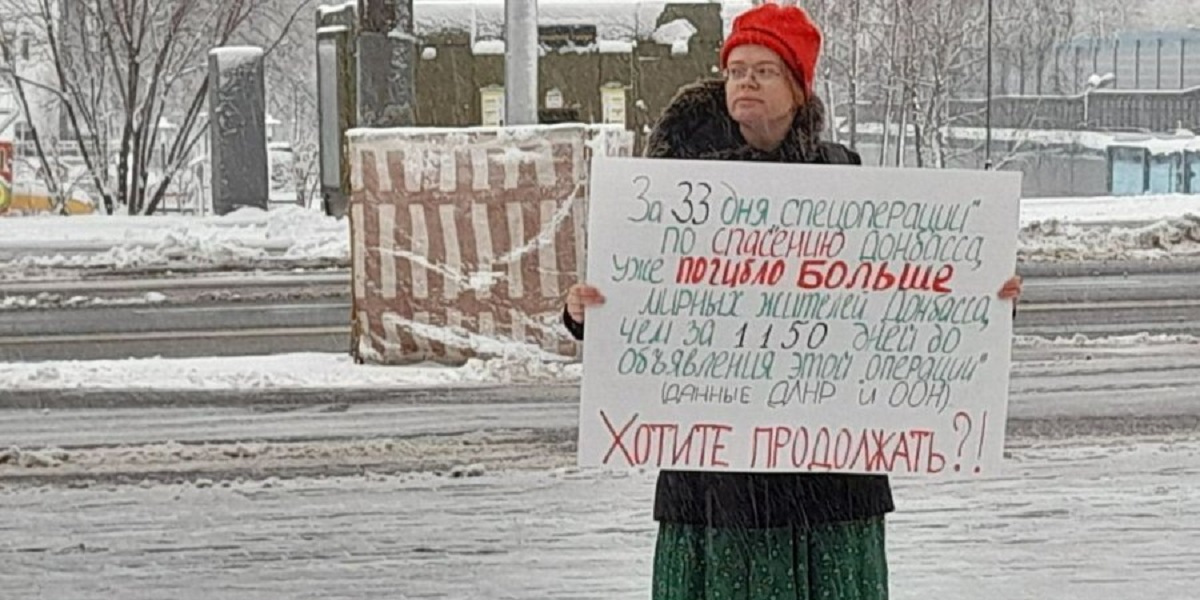 За 33 дня „спецоперации"
по спасению Донбасса,
уже погибло БОЛЬШЕ
мирных жителей Донбасса,
чем за 1150 дней до
объявления этой „операции"
(ДАННЫЕ ДЛНР и ООН).
ХОТИТЕ ПРОДОЛЖАТЬ?!